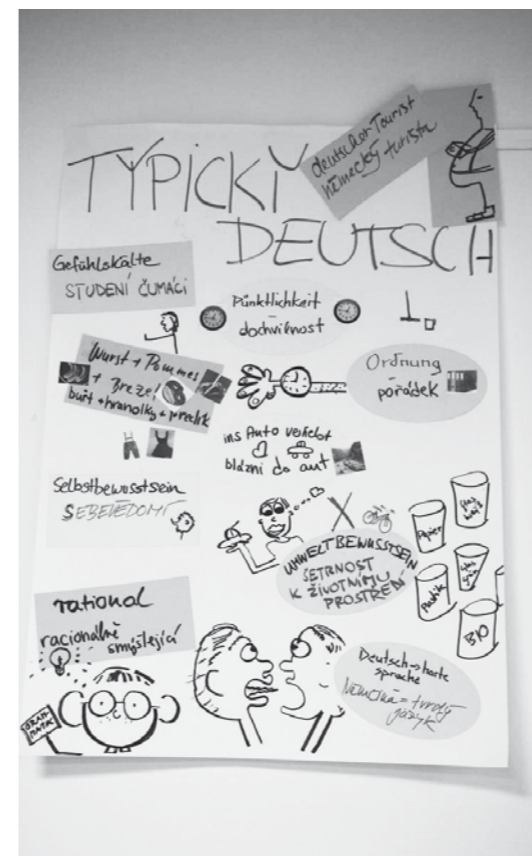 deutscher Tourist
německý turista
TYPICKY
DEUTSCH
Gefühlskälte
STUDENÍ ČUMÁCI
Pünktlichkeit
–
dochvilnost
Wurst + Pommes
+ Brezel
buřt + hranolky + preclík
Ordnung
–
pořádek
ins Auto verliebt
blázni do aut
Selbstbewusstsein
SEBEVĚDOMÍ
UMWELTBEWUSSTSEIN
ŠETRNOST
K ŽIVOTNÍMU
PROSTŘEDÍ
Papier
Plastik
BIO
rational
racionálně
smýšlející
GRAM-
MATIK
Deutsch → harte
sprache
Němčina = tvrdý
jazyk